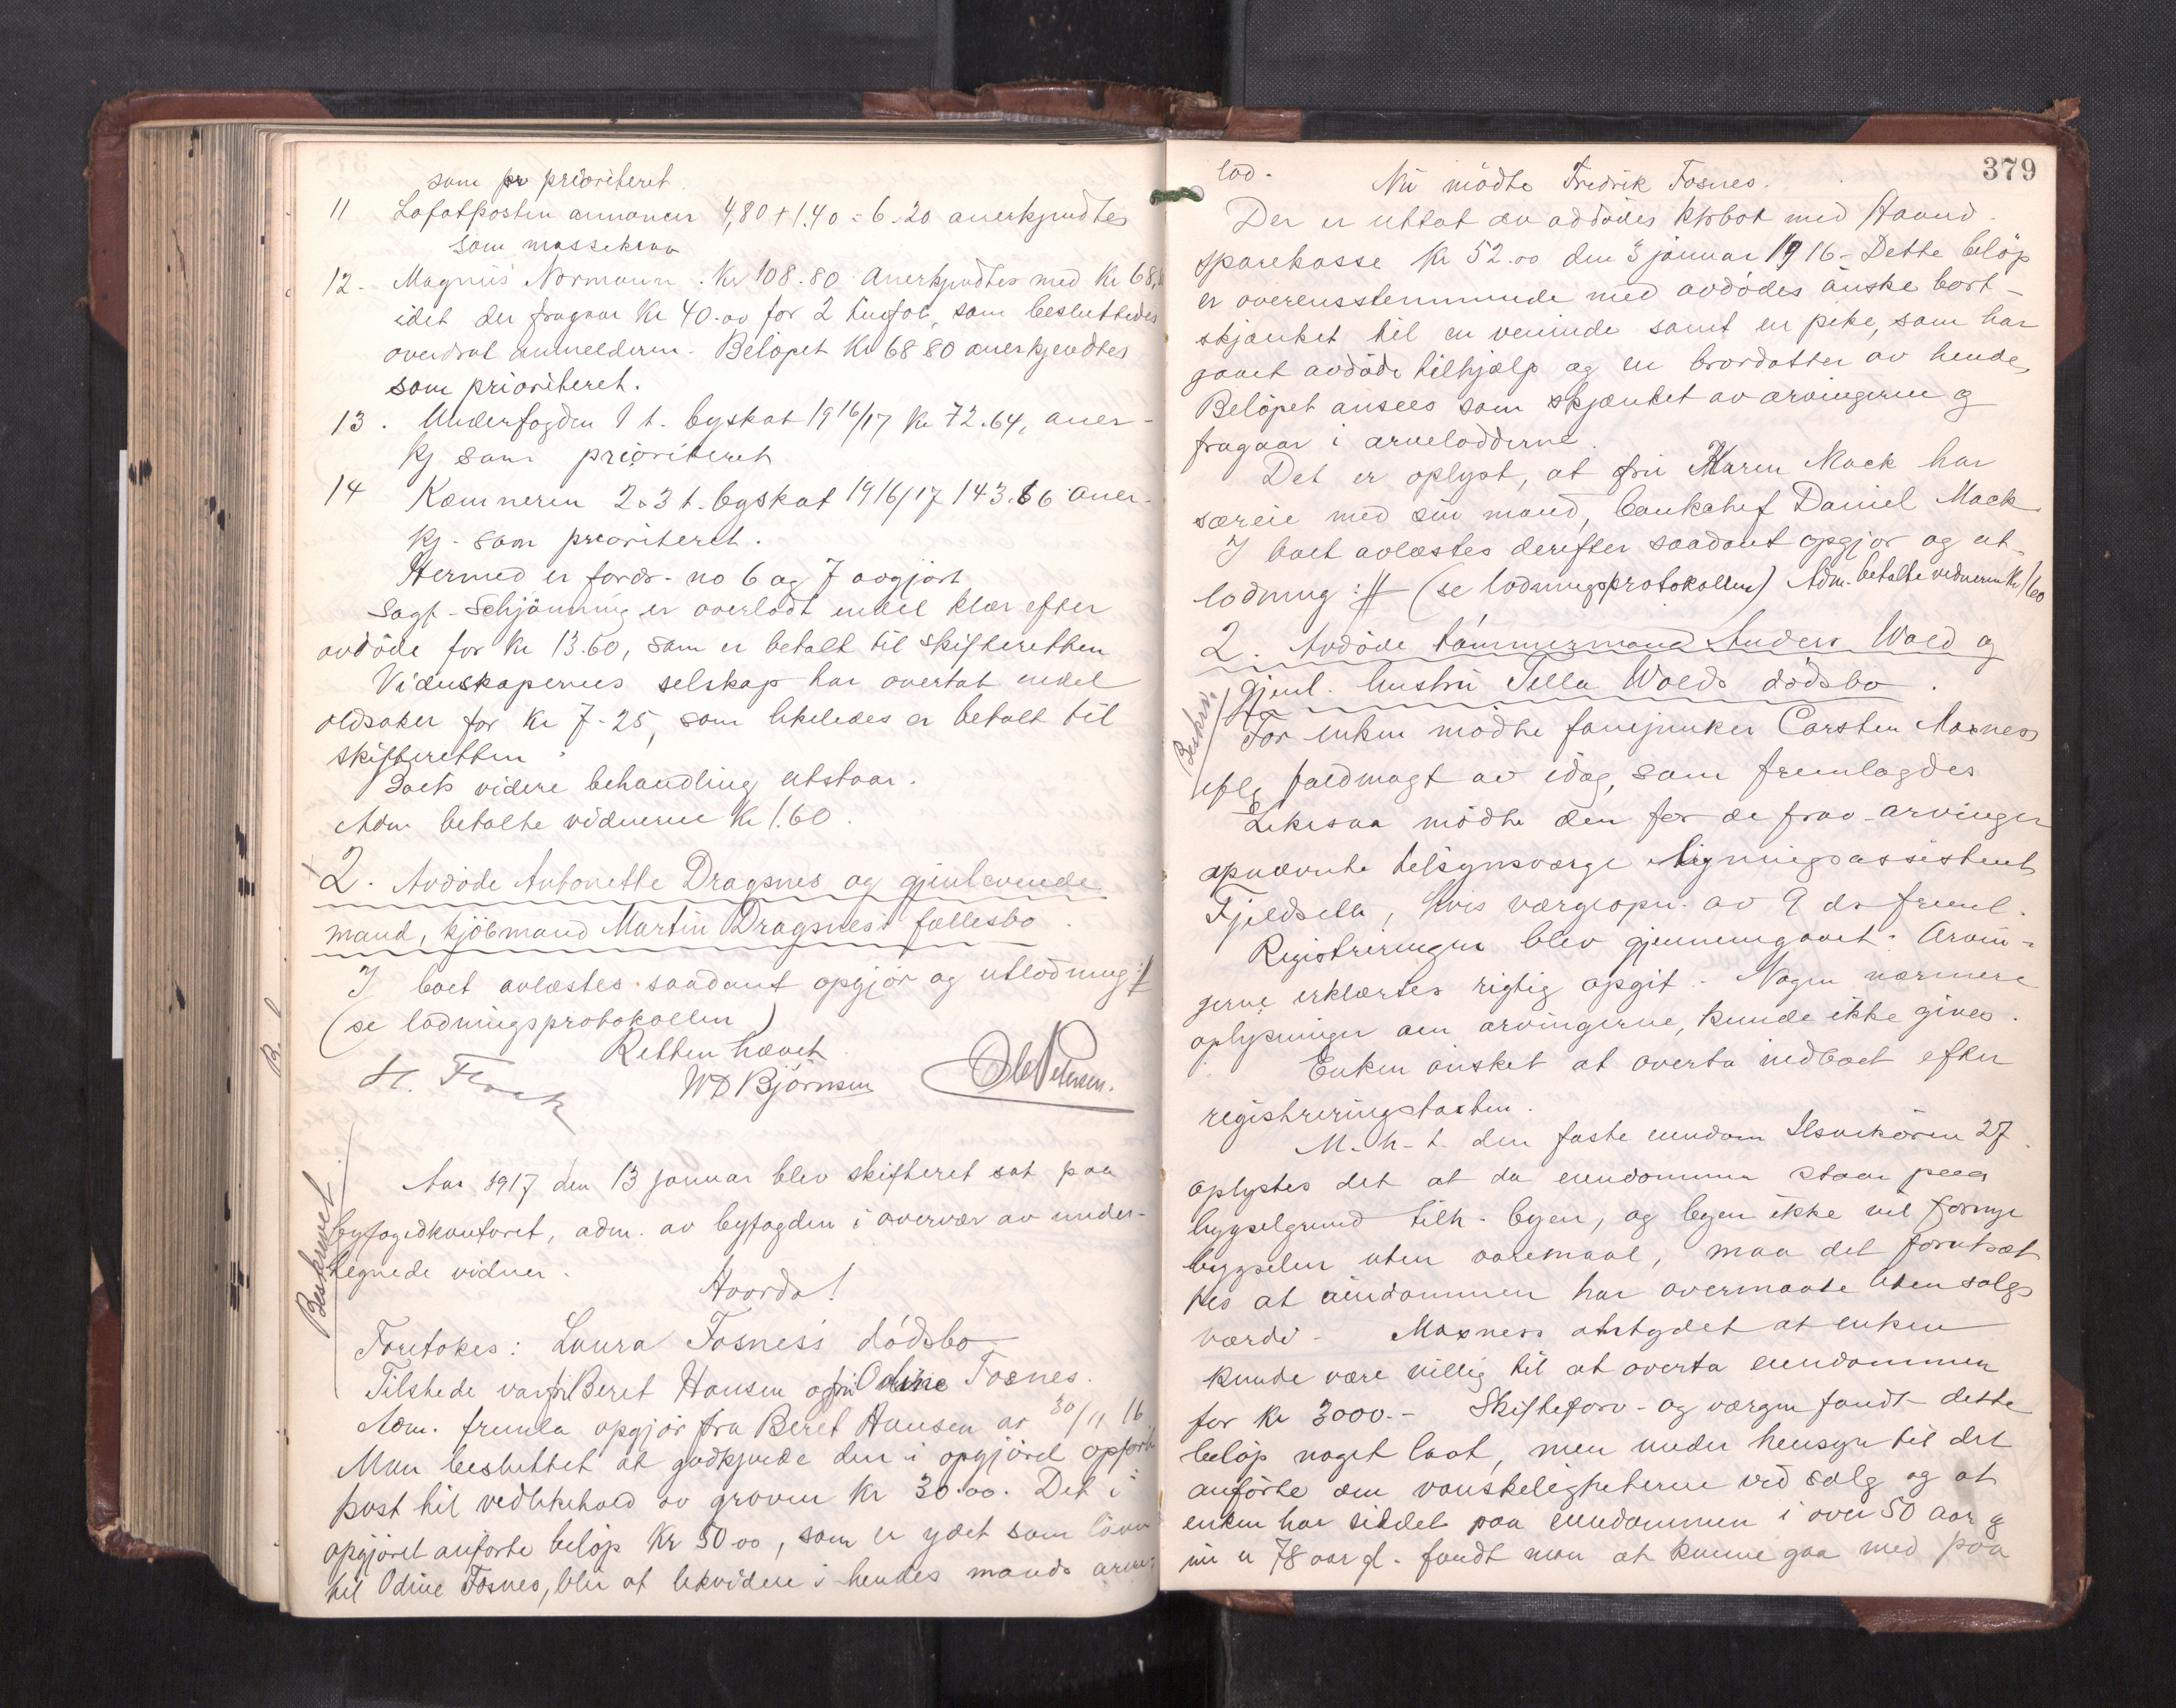 som pr prioriteret.
11 Lofotposten annoncer 4,80 + 1.40 = 6.20 anerkjendtes
som massekrav
12. Magnus Normann. Kr 108.80. Anerkjendtes med Kr 68,
idet der fragaar Kr 40.00 for 2 som besluttedes
overdrat anmelderen. Beløpet Kr 68 80 anerkjendtes
som prioriteret.
13. Underfogden 1 t. byskat 1916/17 Kr 72.64, aner-
kj som prioriteret
14 Kæmneren 2 o 3 t. byskat 1916/17 143.66 aner-
kj. som prioriteret.
Hermed er fordr. no 6 og 7 avgjort
Sagf. Schjønning er overladt endel klær efter
avdøde for Kr 13.60, som er betalt til skifteretten
Videnskapernes selskap har overtat endel
oldsaker for Kr 7.25, som likeledes er betalt til
skifteretten.
Boets videre behandling utstaar.
Adm betalte vidnerne Kr 1.60.
2. Avdøde Antonette Dragsnes og gjenlevende
mand, kjöbmand Martin Dragsnes's fællesbo.
I boet avlæstes saadant opgjör og utlodning ://
(se lodningsprotokollen)
Retten hævet
WD Björnsen Ole Petersen.
Beskrevet
Aar 1917 den 13 januar blev skifteret sat paa
byfogedkontoret, adm. av byfogden i overvær av under-
tegnede vidner.
Hvorda!
Foretokes: Laura Fosnes's dödsbo
Tilstede var fru Beret Hansen og fru Odine Fosnes.
Adm. fremla opgjör fra Beret Hansen av 30/11 16
Man besluttet at godkjende den i opgjöret opförte
post til vedlikehold av graven Kr 30.00. Det i
opgjöret anförte belöp Kr 50.00, som er ydet som laan
til Odine Fosnes, blir at likvidere i hendes mands arve-
379
lod. Nu mödte Fredrik Fosnes.
Der er uttat av avdödes bok med Strind
sparekasse Kr 52.00 den 3 januar 1916. Dette belöp
er overensstemmende med avdödes önske bort-
skjænket til en veninde samt en pike, som har
gaaet avdöde tilhjælp og en brordatter av hende,
Belöpet ansees som skjænket av arvingerne og
fragaar i arvelodderne.
Det er oplyst, at fru Karen Mack har
særeie med sin mand, bankchef Daniel Mack
I boet avlæstes derefter saadant opgjör og ut-
lodning :// (se lodningsprotokollen) Adm. betalte vidnerne Kr 1/60
2. Avdöde tömmermand Anders Wold og
gjenl. hustru Wolds dödsbo.
Beskrev.
For enken mödte fanejunker Carsten Moxness
iflg fuldmagt av idag, som fremlagdes
Likesaa mödte den for de frav. arvinger
opnævnte tilsynsværge ligningsassistent
Fjeldsæth, hvis værgeopn. av 9 ds freml.
Registreringen blev gjennemgaaet. Arvin-
gerne erklærtes rigtig opgit. Nogen nærmere
oplysninger om arvingerne, kunde ikke gives.
Enken önsket at overta indboet efter
registreringstaksten.
M. h. t. den faste eiendom Ilsvikören 27.
oplystes det at da eiendommen staar paa
bygselgrund tilh. byen, og byen ikke vil fornye
bygselen uten aaremaal, maa det forutsæt-
tes at eiendommen har overmaate liten salgs
værdi. Moxness antydet at enken
kunde være villig til at overta eiendommen
for Kr 3000.- Skifteforv. og værgen fandt dette
belöp noget lavt, men under hensyn til det
anförte om vanskeligheterne ved salg og at
enken har siddet paa eiendommen i over 50 aar og
nu er 78 aar gl. fandt man at kunne gaa med paa